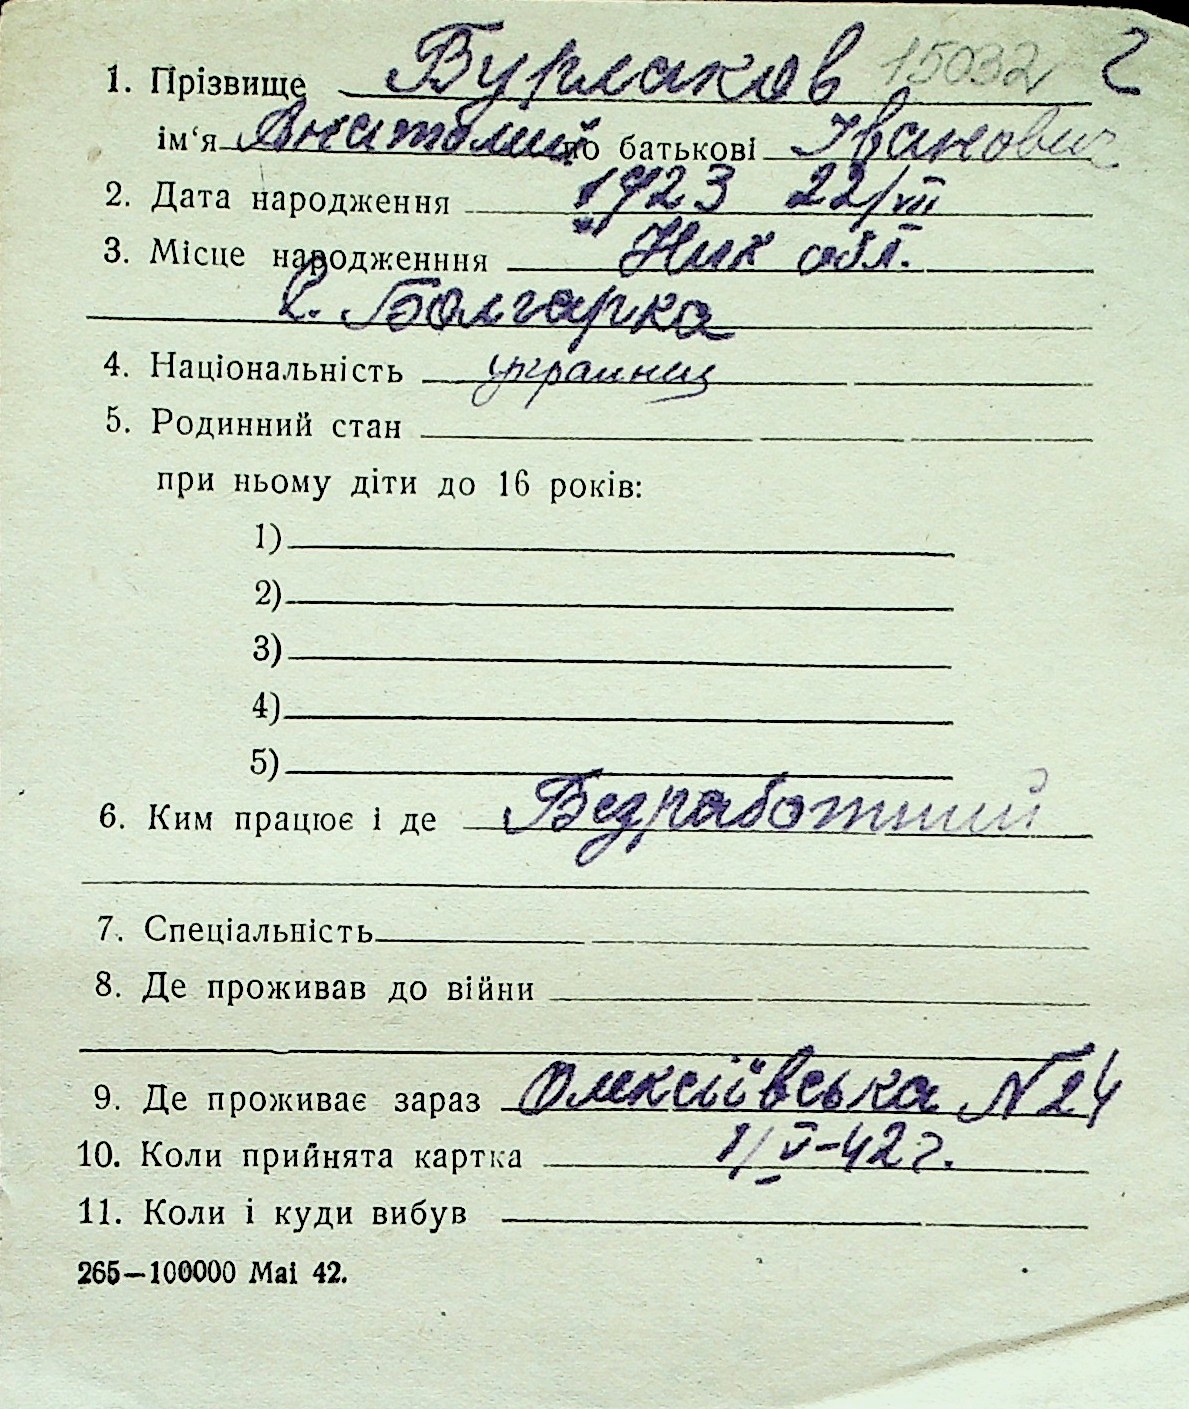 1. Прізвище Бурлаков 15032 2
ім‘я Анатолий по батькові Іванович
2. Дата народження 1923 22/VII
3. Місце народженння Ник обл.
с. Болгарка
4. Національність украинец
5. Родинний стан
при ньому діти до 16 років:
1)
2)
3)
4)
5)
6. Ким працює і де Безработний
7. Спеціальність
8. Де проживав до війни
9. Де проживає зараз Олексіївська N 24
10. Коли прийнята картка 1/V-42 г.
11. Коли і куди вибув
265—100000 Mai 42.